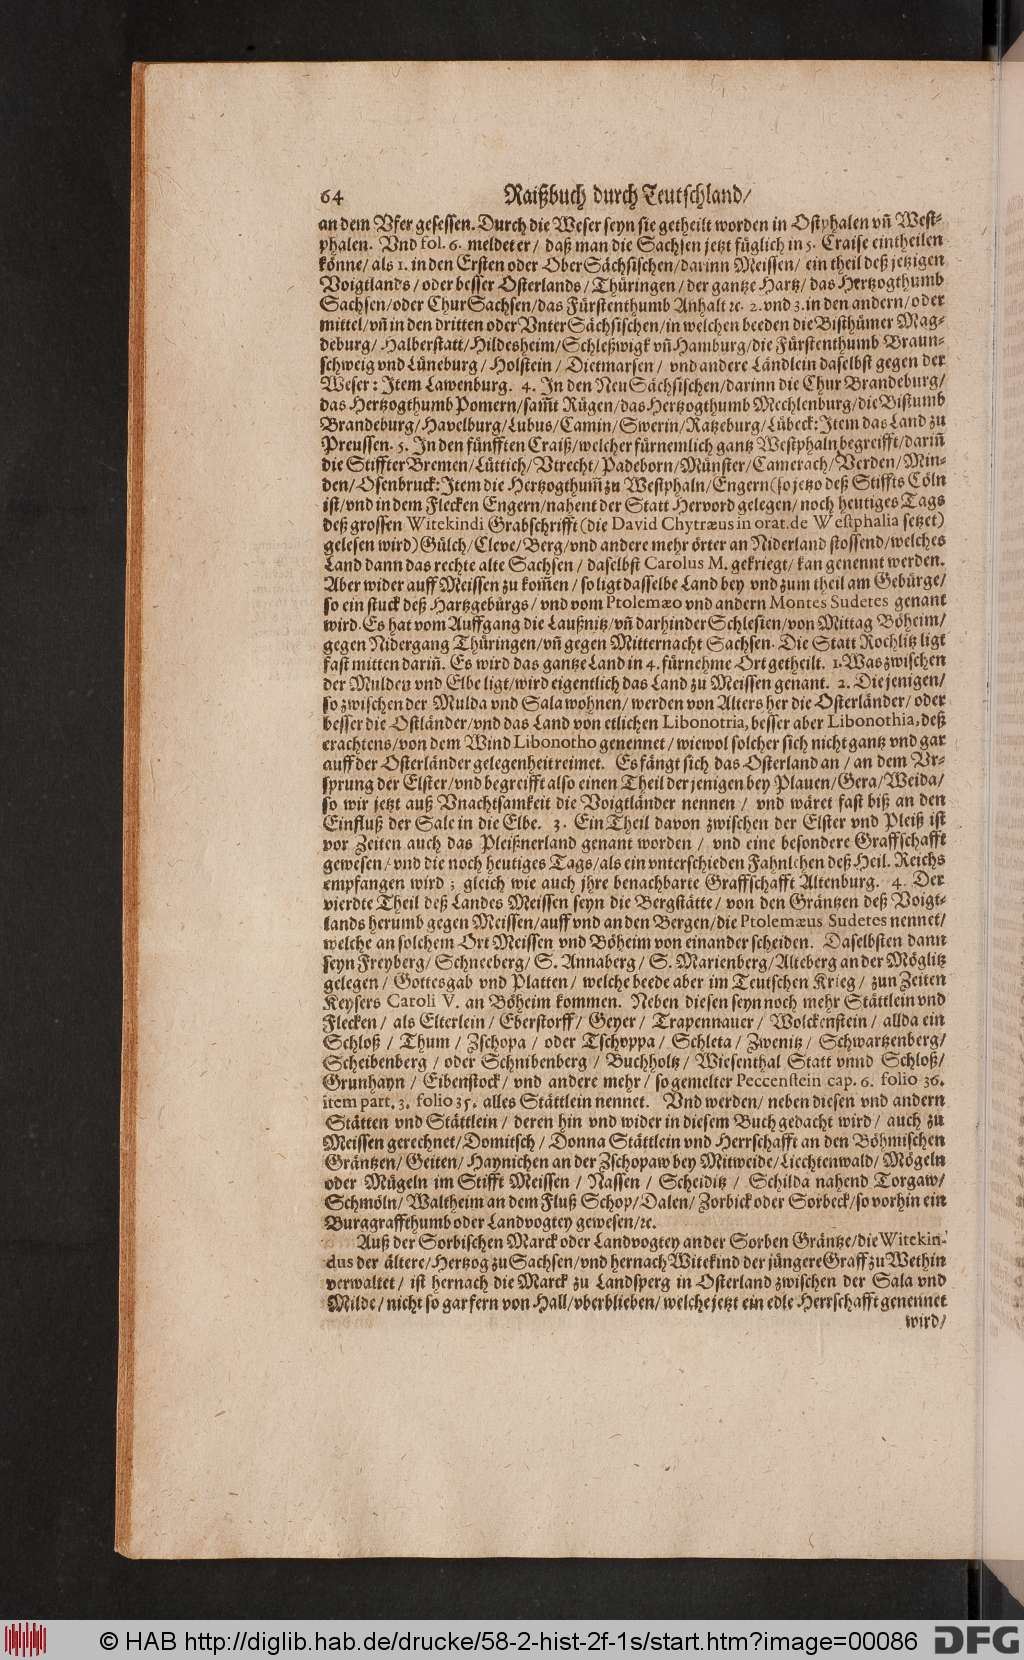 64 Raißbuch durch Teutschland/
an dem Vfer gesessen. Durch die Weser seyn sie getheilt worden in Ostphalen vñ West-
phalen. Vnd fol. 6. meldet er/ daß man die Sachsen jetzt füglich in 5. Craise eintheilen
könne/ als 1. in den Ersten oder Ober Sächsischen/ darinn Meissen/ ein theil deß jetzigen
Voigtlands/ oder besser Osterlands/ Thüringen/ der gantze Hartz/ das Hertzogthumb
Sachsen/ oder Chur Sachsen/ das Fürstenthumb Anhalt ꝛc. 2. vnd 3. in den andern/ oder
mittel/ vñ in den dritten oder Vnter Sächsischen/ in welchen beeden die Bisthümer Mag-
deburg/ Halberstatt/ Hildesheim/ Schleßwigk vñ Hamburg/ die Fürstenthumb Braun-
schweig vnd Lüneburg/ Holstein/ Dietmarsen/ vnd andere Ländlein daselbst gegen der
Weser: Item Lawenburg. 4. In den Neu Sächsischen/ darinn die Chur Brandeburg/
das Hertzogthumb Pomern/ sam̃t Rügen/ das Hertzogthumb Mechlenburg/ die Bistumb
Brandeburg/ Havelburg/ Lubus/ Camin/ Swerin/ Ratzeburg/ Lübeck: Item das Land zu
Preussen. 5. In den fünfften Craiß/ welcher fürnemlich gantz Westphaln begreifft/ dariñ
die Stiffter Bremen/ Lüttich/ Vtrecht/ Padeborn/ Münster/ Camerach/ Verden/ Min-
den/ Osenbruck: Item die Hertzogthum̃ zu Westphaln/ Engern (so jetzo deß Stiffts Cöln
ist/ vnd in dem Flecken Engern/ nahent der Statt Hervord gelegen/ noch heutiges Tags
deß grossen Witekindi Grabschrifft (die David Chytræus in orat. de Westphalia setzet)
gelesen wird) Gülch/ Cleve/ Berg/ vnd andere mehr örter an Niderland stossend/ welches
Land dann das rechte alte Sachsen/ daselbst Carolus M. gekriegt/ kan genennt werden.
Aber wider auff Meissen zu kom̃en/ so ligt dasselbe Land bey vnd zum theil am Gebürge/
so ein stuck deß Hartzgebürgs/ vnd vom Ptolemæo vnd andern Montes Sudetes genant
wird. Es hat vom Auffgang die Laußnitz/ vñ darhinder Schlesien/ von Mittag Böheim/
gegen Nidergang Thüringen/ vñ gegen Mitternacht Sachsen. Die Statt Rochlitz ligt
fast mitten dariñ. Es wird das gantze Land in 4. fürnehme Ort getheilt. 1. Was zwischen
der Mulden vnd Elbe ligt/ wird eigentlich das Land zu Meissen genant. 2. Die jenigen/
so zwischen der Mulda vnd Sala wohnen/ werden von Alters her die Osterländer/ oder
besser die Ostländer/ vnd das Land von etlichen Libonotria, besser aber Libonothia, deß
erachtens/ von dem Wind Libonotho genennet/ wiewol solcher sich nicht gantz vnd gar
auff der Osterländer gelegenheit reimet. Es fängt sich das Osterland an/ an dem Vr-
sprung der Elster/ vnd begreifft also einen Theil der jenigen bey Plauen/ Gera/ Weida/
so wir jetzt auß Vnachtsamkeit die Voigtländer nennen/ vnd wäret fast biß an den
Einfluß der Sale in die Elbe. 3. Ein Theil davon zwischen der Elster vnd Pleiß ist
vor Zeiten auch das Pleißnerland genant worden/ vnd eine besondere Graffschafft
gewesen/ vnd die noch heutiges Tags/ als ein vnterschieden Fahnlehen deß Heil. Reichs
empfangen wird; gleich wie auch jhre benachbarte Graffschafft Altenburg. 4. Der
vierdte Theil deß Landes Meissen seyn die Bergstätte/ von den Gräntzen deß Voigt-
lands herumb gegen Meissen/ auff vnd an den Bergen/ die Ptolemæus Sudetes nennet/
welche an solchem Ort Meissen vnd Böheim von einander scheiden. Daselbsten dann
seyn Freyberg/ Schneeberg/ S. Annaberg/ S. Marienberg/ Alteberg an der Möglitz
gelegen/ Gottesgab vnd Platten/ welche beede aber im Teutschen Krieg/ zun Zeiten
Keysers Caroli V. an Böheim kommen. Neben diesen seyn noch mehr Stättlein vnd
Flecken/ als Elterlein/ Eberstorff/ Geyer/ Trapennauer/ Wolckenstein/ allda ein
Schloß/ Thum/ Zschopa/ oder Tschoppa/ Schleta/ Zwenitz/ Schwartzenberg/
Scheibenberg/ oder Schnibenberg/ Buchholtz/ Wiesenthal Statt vnnd Schloß/
Grunhayn/ Eibenstock/ vnd andere mehr/ so gemelter Peccenstein cap. 6. folio 36.
item part. 3. folio 35. alles Stättlein nennet. Vnd werden/ neben diesen vnd andern
Stätten vnd Stättlein/ deren hin vnd wider in diesem Buch gedacht wird/ auch zu
Meissen gerechnet/ Domitsch/ Donna Stättlein vnd Herrschafft an den Böhmischen
Gräntzen/ Geiten/ Haynichen an der Zschopaw bey Mitweide/ Liechtenwald/ Mögeln
oder Mügeln im Stifft Meissen/ Nassen/ Scheiditz/ Schilda nahend Torgaw/
Schmöln/ Waltheim an dem Fluß Schop/ Dalen/ Zorbick oder Sorbeck/ so vorhin ein
Burggraffthumb oder Landvogtey gewesen/ ꝛc.
Auß der Sorbischen Marck oder Landvogtey an der Sorben Gräntze/ die Witekin-
dus der ältere/ Hertzog zu Sachsen/ vnd hernach Witekind der jüngere Graff zu Wethin
verwaltet/ ist hernach die Marck zu Landsperg in Osterland zwischen der Sala vnd
Milde/ nicht so gar fern von Hall/ vberblieben/ welche jetzt ein edle Herrschafft genennet
wird/
© HAB http://diglib.hab.de/drucke/58-2-hist-2f-1s/start.htm?image=00086 DFG